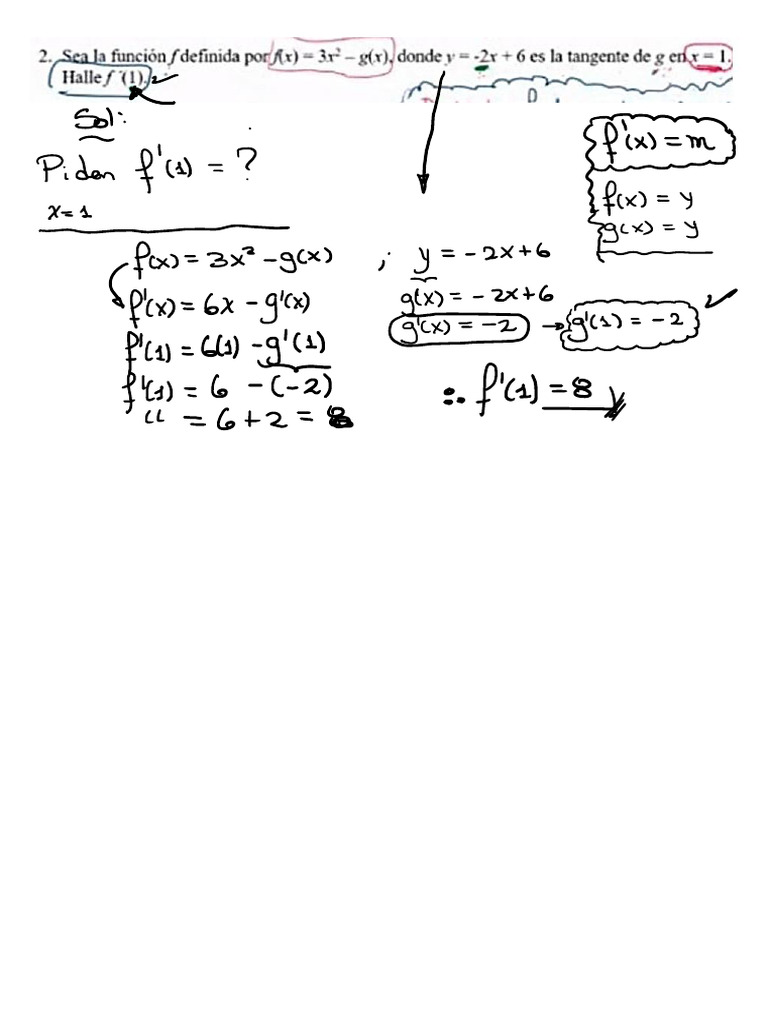 2. Sea la función f definida por f(x) = 3x² – g(x), donde y = -2x + 6 es la tangente de g en x = 1.
Halle f '(1).
Sol:
Piden f'(1) = ?
x = 1
f'(x) = m
f(x) = y
g(x) = y
f(x) = 3x² - g(x) ; y = -2x+6
g(x) = -2x+6
f'(x) = 6x - g'(x)
g'(x) = -2 → g'(1) = -2
f'(1) = 6(1) - g'(1)
f'(1) = 6 - (-2)
∴ f'(1) = 8
" = 6+2 = 8